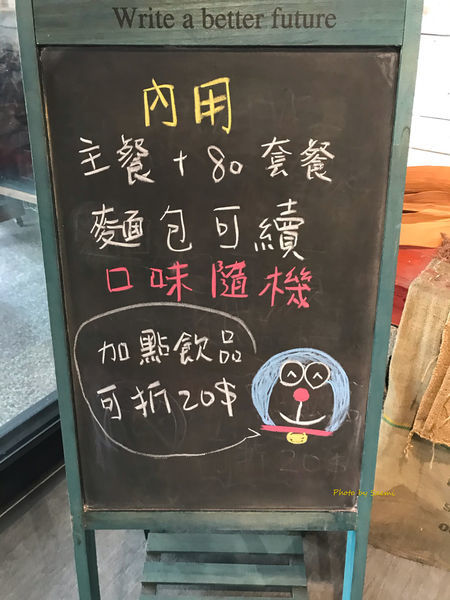 Write a better future
內用
主餐+80套餐
麵包可續
口味隨機
加點飲品
可折20$
折 20$
Photo by Saemi